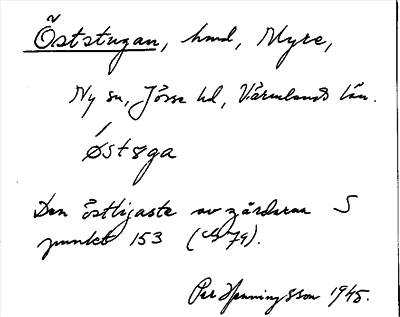 Öststugan, hmd, Myre,
Ny sn, Jösse hd, Värmlands län.
Østøga
Den östligaste av gårdarna S
punkt 153 (79).
Per Henningsson 1945.